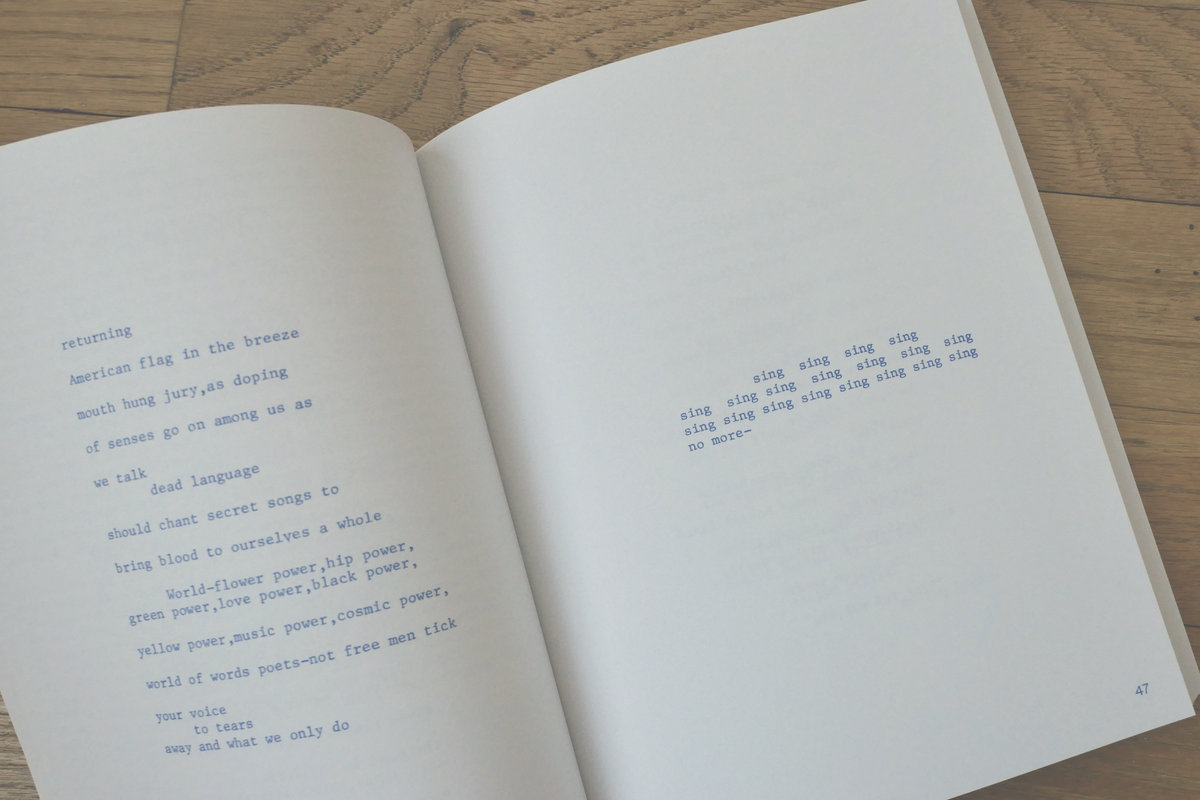 returning
American flag in the breeze
mouth hung jury,as doping
of senses go on among us as
we talk
dead language
should chant secret songs to
bring blood to ourselves a whole
World-flower power,hip power,
green power,love power,black power,
yellow power,music power,cosmic power,
world of words poets-not free men tick
your voice
to tears
away and what we only do
sing sing sing sing
sing sing sing sing sing sing sing
sing sing sing sing sing sing sing sing
no more-
47